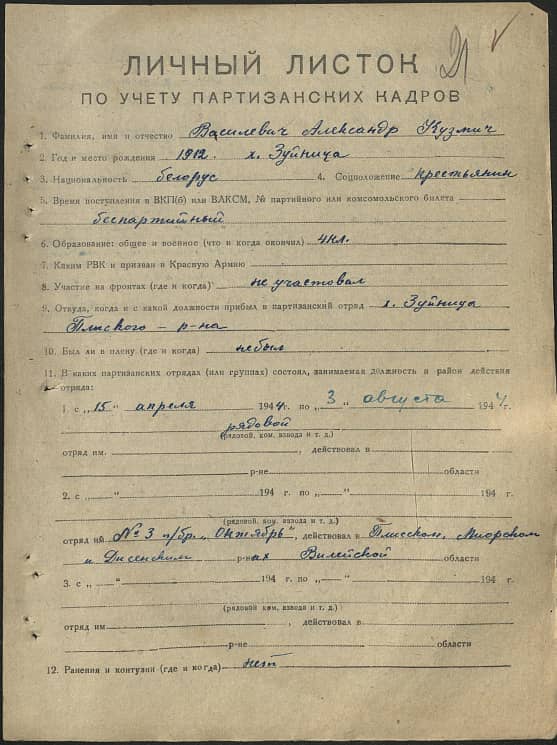 21
ЛИЧНЫЙ ЛИСТОК
ПО УЧЕТУ ПАРТИЗАНСКИХ КАДРОВ
1. Фамилия, имя и отчество Василевич Александр Кузмич
2. Год и место рождения 1912. х. Зуйница
3. Национальность белорус 4. Соцположение крестьянин
5. Время поступления в ВКП(б) или ВЛКСМ, № партийного или комсомольского билета
беспартийный
6. Образование: общее и военное (что и когда окончил) 4кл.
7. Каким РВК и призван в Красную Армию
8. Участие на фронтах (где и когда) не участовал
9. Откуда, когда и с какой должности прибыл в партизанский отряд х. Зуйница
Плиского р-на
10. Был ли в плену (где и когда) небыл
11. В каких партизанских отрядах (или группах) состоял, занимаемая должность и район действия
отряда:
1. с „15" апреля 1944 г. по „3" августа 1944 г.
рядовой
(рядовой, ком. взвода и т. д.)
отряд им. , действовал в
р-не области
2. с „ " 194 г. по „ " 194 г.
(рядовой, ком. взвода и т. д.)
отряд им № 3 п/бр. „Октябрь", действовал в Плисском, Миорском
и Дисенском р-нах Вилейской области
3. с „ " 194 г. по „ " 194 г.
(рядовой, ком. взвода и т. д.)
отряд им. , действовал в
р-не области
12. Ранения и контузии (где и когда) нет